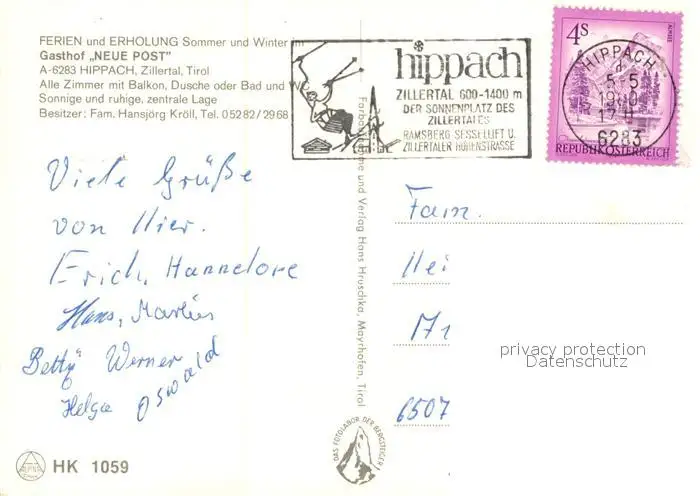 FERIEN und ERHOLUNG Sommer und Winter im
Gasthof „NEUE POST"
A-6283 HIPPACH, Zillertal, Tirol
Alle Zimmer mit Balkon, Dusche oder Bad und WC
Sonnige und ruhige, zentrale Lage
Besitzer: Fam. Hansjörg Kröll, Tel. 05282/2968
hippach
ZILLERTAL 600-1400 m
DER SONNENPLATZ DES
ZILLERTALES
RAMSBERG SESSELLIFT U.
ZILLERTALER HÖHENSTRASSE
4S
REPUBLIK ÖSTERREICH
HIPPACH
5.5
6283
Viele Grüße
von Hier.
Erich, Hannelore
Hans, Martin
Betty Werner
Helga Oswald
und Verlag Hans Hruschka, Mayrhofen, Tirol
DAS FOTOLABOR DER BERGSTEIGER
Fam.
6507
privacy protection
Datenschutz
ALPINA
HK 1059